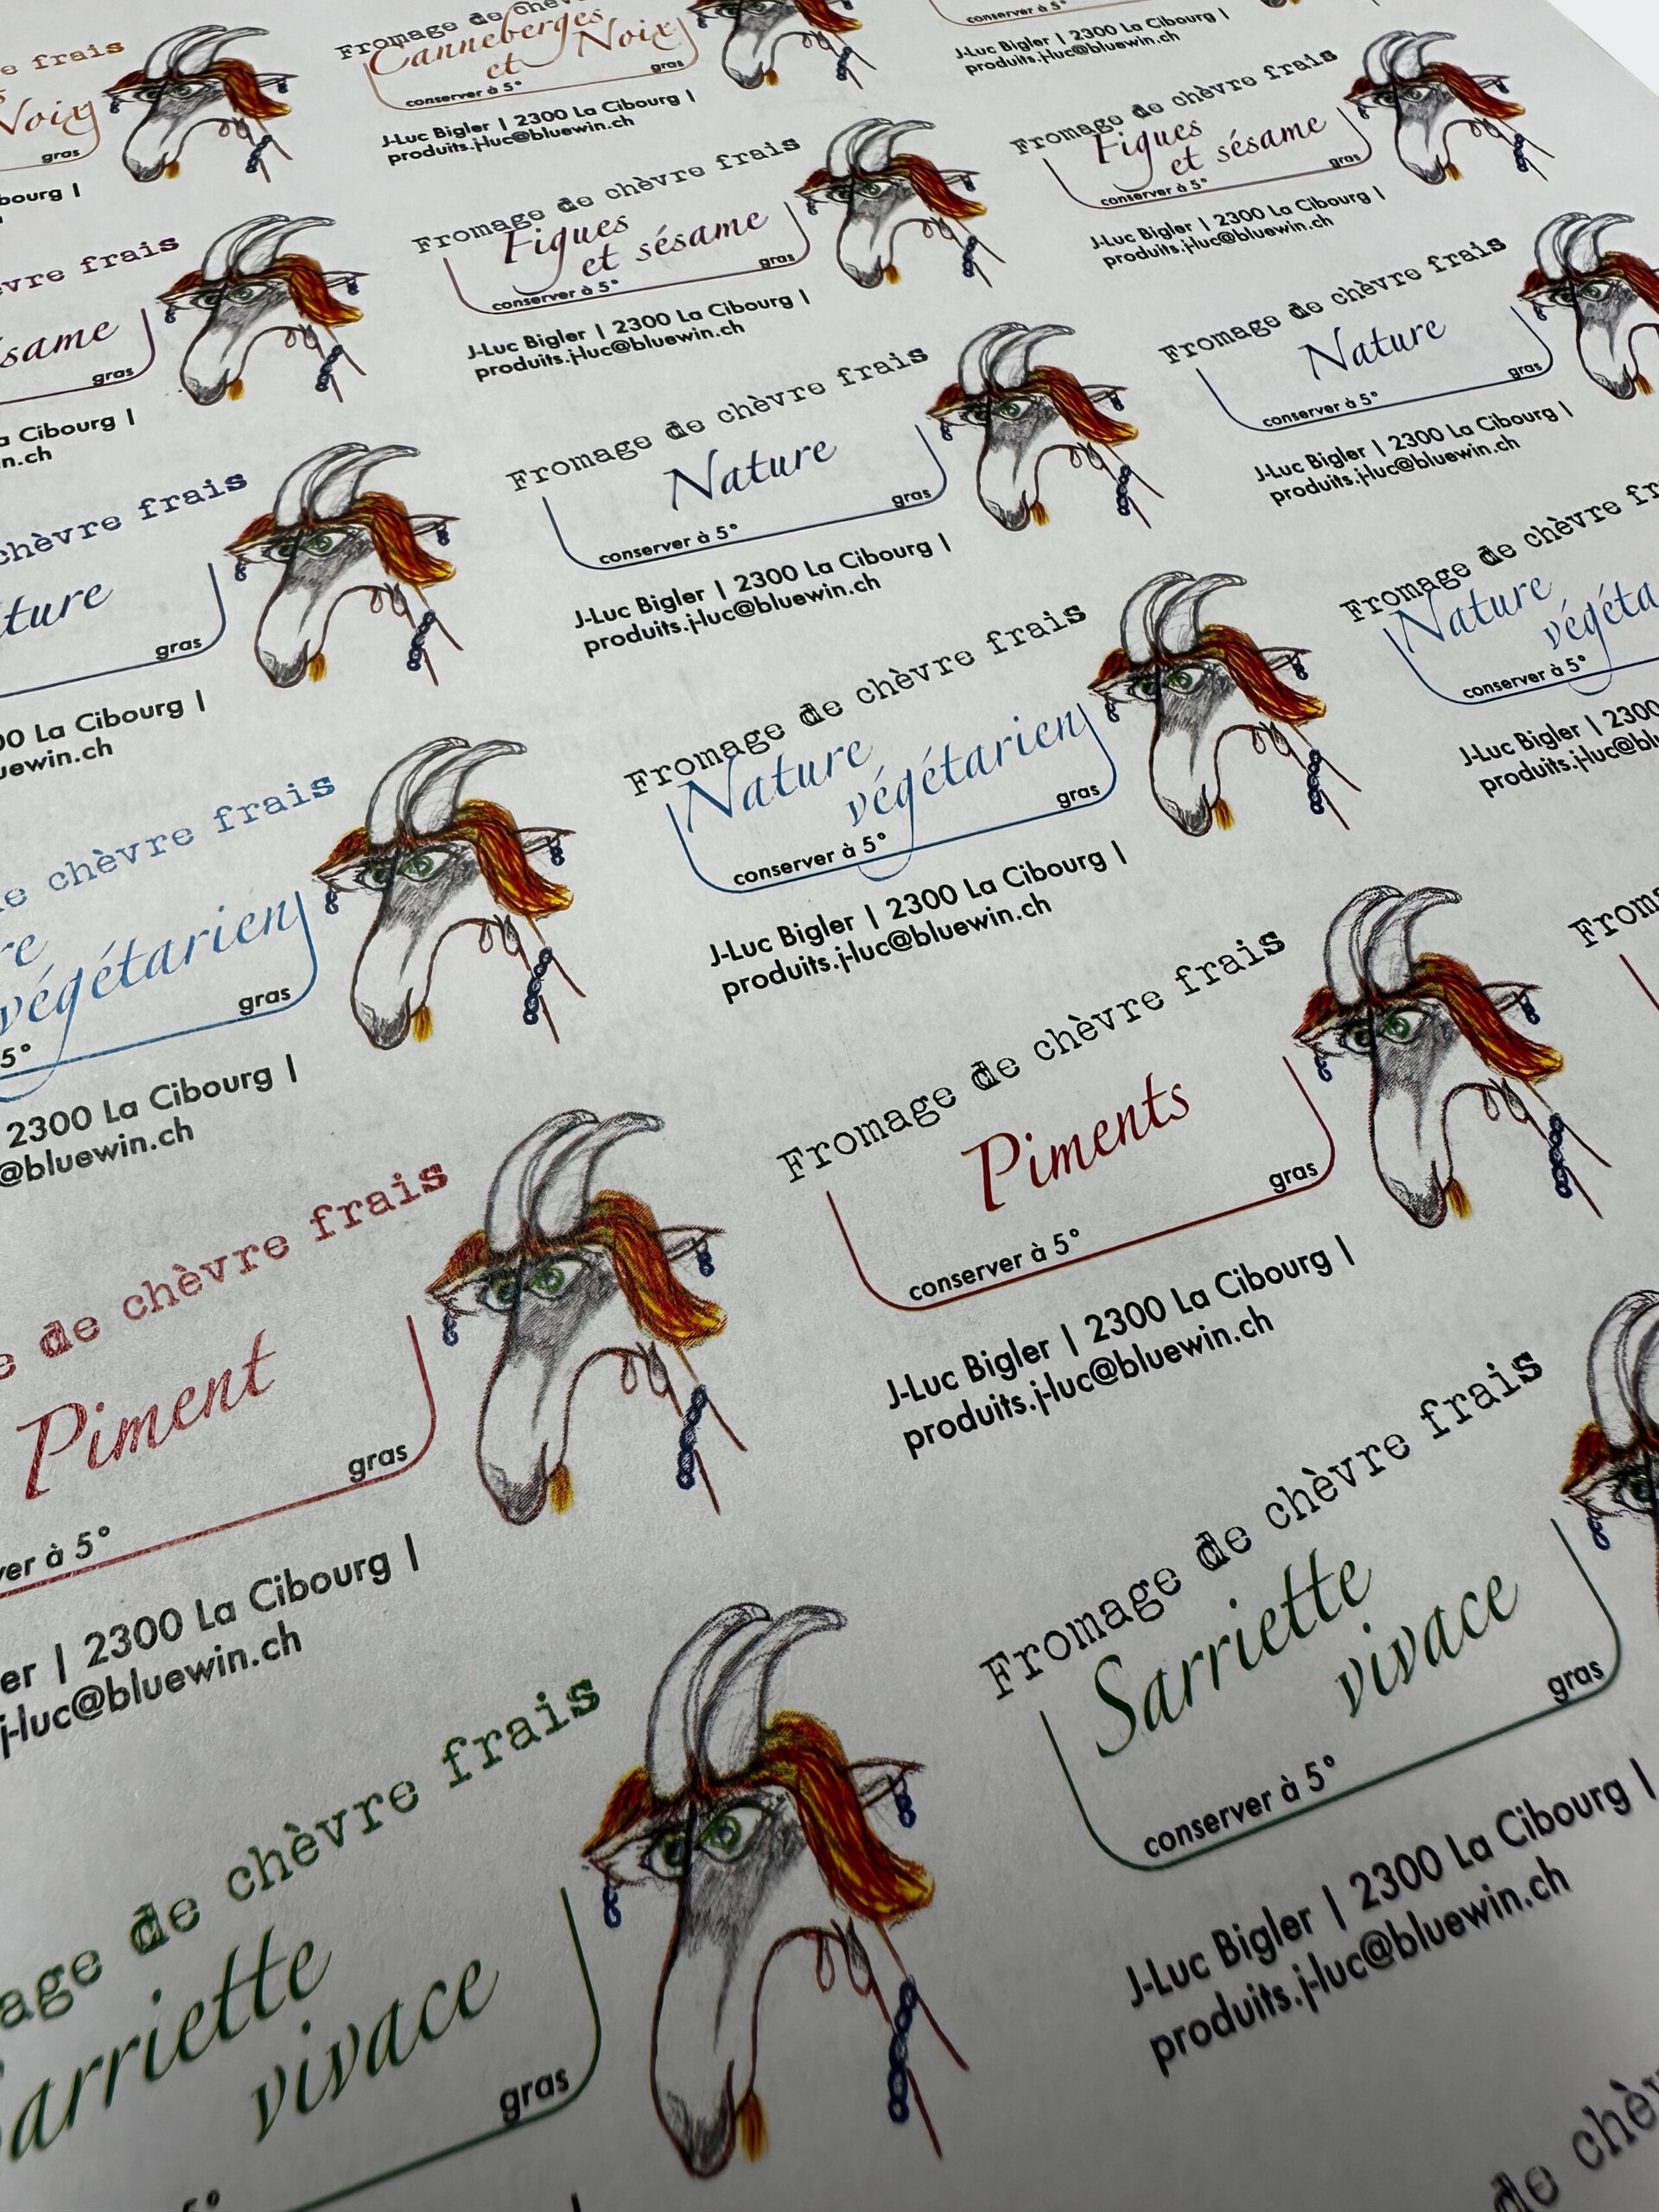 e frais
Noix
gras
bourg |
Fromage de chèv
Canneberges
et Noix
conserver à 5°
gras
J-Luc Bigler | 2300 La Cibourg |
produits.j-luc@bluewin.ch
conserver à 5°
J-Luc Bigler | 2300 La Cibourg |
produits.j-luc@bluewin.ch
vre frais
ésame
gras
a Cibourg |
n.ch
Fromage de chèvre frais
Figues
et sésame
conserver à 5°
gras
J-Luc Bigler | 2300 La Cibourg |
produits.j-luc@bluewin.ch
Fromage de chèvre frais
Figues
et sésame
conserver à 5°
gras
J-Luc Bigler | 2300 La Cibourg |
produits.j-luc@bluewin.ch
chèvre frais
ture
gras
00 La Cibourg |
uewin.ch
Fromage de chèvre frais
Nature
conserver à 5°
gras
J-Luc Bigler | 2300 La Cibourg |
produits.j-luc@bluewin.ch
Fromage de chèvre frais
Nature
conserver à 5°
gras
J-Luc Bigler | 2300 La Cibourg |
produits.j-luc@bluewin.ch
e chèvre frais
re
végétarien
gras
5°
2300 La Cibourg |
@bluewin.ch
Fromage de chèvre frais
Nature
végétarien
conserver à 5°
gras
J-Luc Bigler | 2300 La Cibourg |
produits.j-luc@bluewin.ch
Fromage de chèvre fr
Nature
végéta
conserver à 5°
J-Luc Bigler | 2300
produits.j-luc@blu
e de chèvre frais
Piment
gras
ver à 5°
er | 2300 La Cibourg |
j-luc@bluewin.ch
Fromage de chèvre frais
Piments
conserver à 5°
gras
J-Luc Bigler | 2300 La Cibourg |
produits.j-luc@bluewin.ch
From
age de chèvre frais
arriette
vivace
gras
5°
Fromage de chèvre frais
Sarriette
vivace
conserver à 5°
gras
J-Luc Bigler | 2300 La Cibourg |
produits.j-luc@bluewin.ch
de chèv